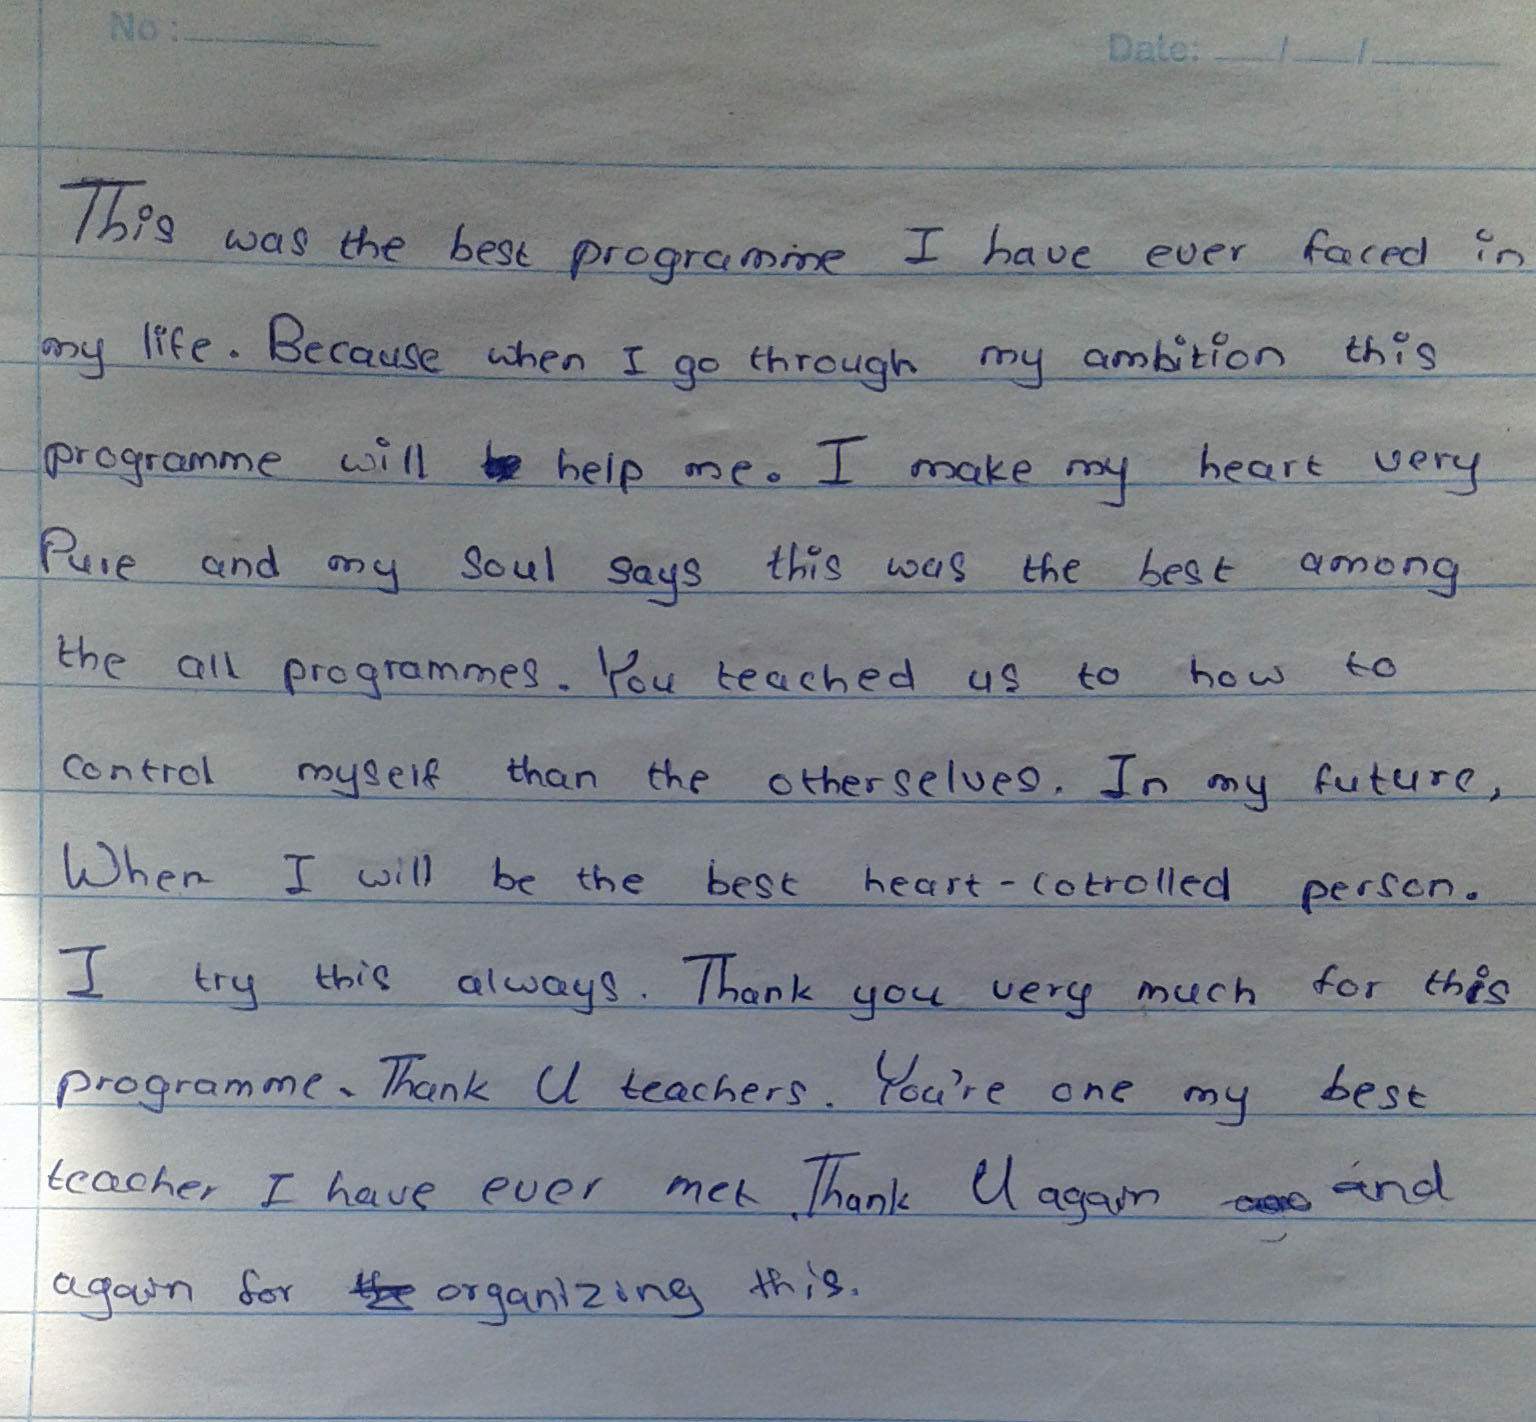 No : Date: __/__/____
This was the best programme I have ever faced in
my life. Because when I go through my ambition this
programme will help me. I make my heart very
Pure and my Soul says this was the best among
the all programmes. You teached us to how to
control myself than the otherselves. In my future,
When I will be the best heart-cotrolled person.
I try this always. Thank you very much for this
programme. Thank U teachers. You're one my best
teacher I have ever met. Thank U again and
again for the organizing this.